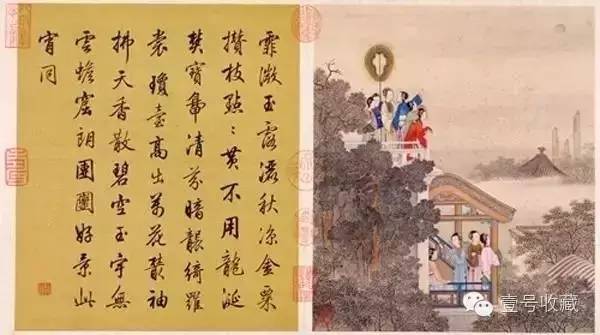 霏微玉露濕秋凉金粟
攒枝點々黄不用龍涎
焚寶鼎清芬暗襲綺羅
裳瓊臺高出萬花叢袖
拂天香散碧空玉宇無
雲蟾窟朗團圞好景此
宵同
壹号收藏